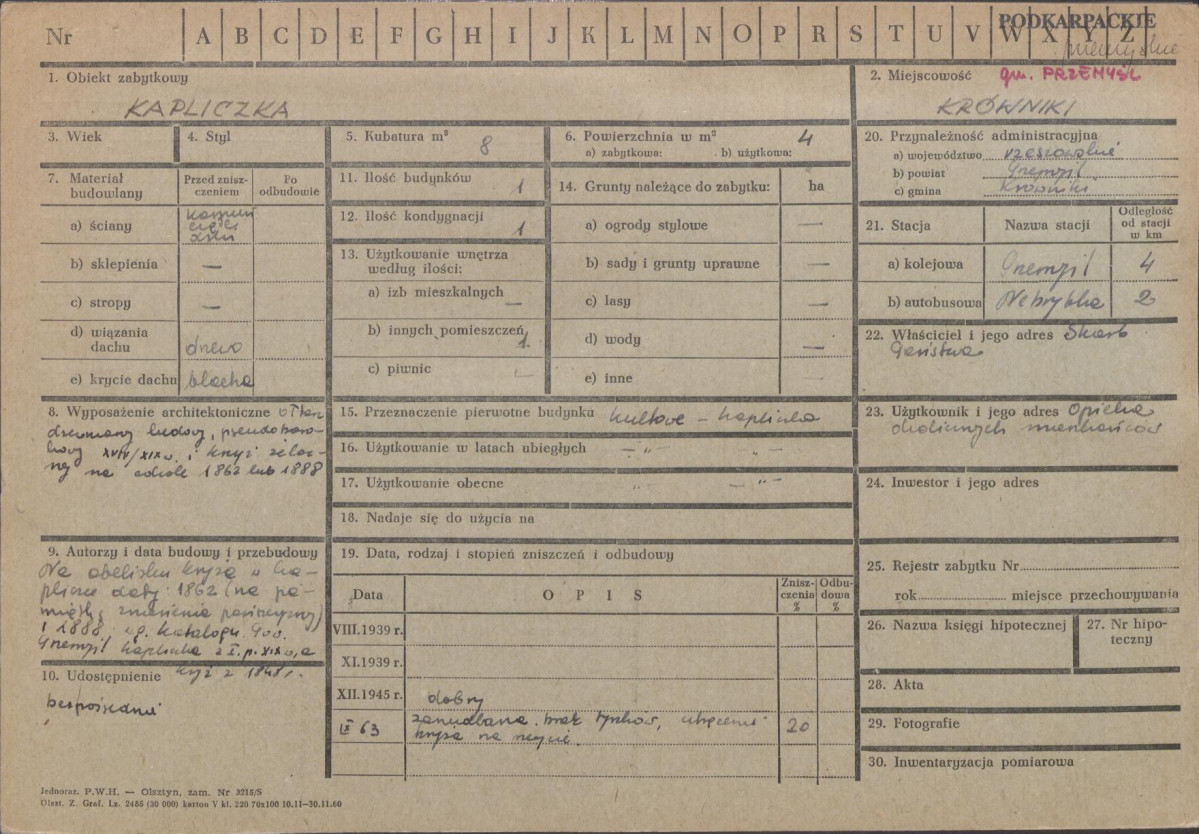 Nr A B C D E F G H I J K L M N O P R S T U V W X Y Z
PODKARPACKIE
1. Obiekt zabytkowy
KAPLICZKA
2. Miejscowość gm. PRZEMYŚL
KRÓWNIKI
3. Wiek
4. Styl
5. Kubatura m³ 8
6. Powierzchnia w m² 4
a) zabytkowa: b) użytkowa:
7. Materiał budowlany
Przed zniszczeniem
Po odbudowie
a) ściany
kamień
cegła
b) sklepienia —
c) stropy —
d) wiązania dachu drewo
e) krycie dachu blacha
8. Wyposażenie architektoniczne ołtarz
drewniany ludowy, pseudobaro-
kowy XVIII/XIX w. i krzyż żelaz-
ny na cokole 1862 lub 1888
9. Autorzy i data budowy i przebudowy
Na obelisku krzyża w ka-
plicze daty: 1862 (na pa-
miątkę zniesienia pańszczyzny)
i 1888. wg. Katalogu Pow.
Przemyśl kapliczka z I. p. XIX w, a
krzyż z 1848 r.
10. Udostępnienie
bezpośrednie
11. Ilość budynków 1
12. Ilość kondygnacji 1
13. Użytkowanie wnętrza
według ilości:
a) izb mieszkalnych —
b) innych pomieszczeń 1.
c) piwnic —
14. Grunty należące do zabytku: ha
a) ogrody stylowe —
b) sady i grunty uprawne —
c) lasy —
d) wody —
e) inne —
15. Przeznaczenie pierwotne budynku kultowe – kapliczka
16. Użytkowanie w latach ubiegłych — „ — — „ —
17. Użytkowanie obecne „ — — „ —
18. Nadaje się do użycia na
19. Data, rodzaj i stopień zniszczeń i odbudowy
Data OPIS Zniszczenia % Odbudowa %
VIII.1939 r.
XI.1939 r.
XII.1945 r. dobry
IX 63 zaniedbana. brak tynków, skręcenie 20
krzyża na szczycie.
20. Przynależność administracyjna
a) województwo rzeszowskie
b) powiat Przemyśl
c) gmina Krówniki
21. Stacja Nazwa stacji Odległość od stacji w km
a) kolejowa Przemyśl 4
b) autobusowa Nehrybka 2
22. Właściciel i jego adres Skarb
Państwa
23. Użytkownik i jego adres Opieka
okolicznych mieszkańców
24. Inwestor i jego adres
25. Rejestr zabytku Nr
rok miejsce przechowywania
26. Nazwa księgi hipotecznej
27. Nr hipo-
teczny
28. Akta
29. Fotografie
30. Inwentaryzacja pomiarowa
Jednoraz. P.W.H. — Olsztyn, zam. Nr 3215/S
Olszt. Z. Graf. Lz. 2485 (30 000) karton V kl. 220 70x100 10.11—30.11.60